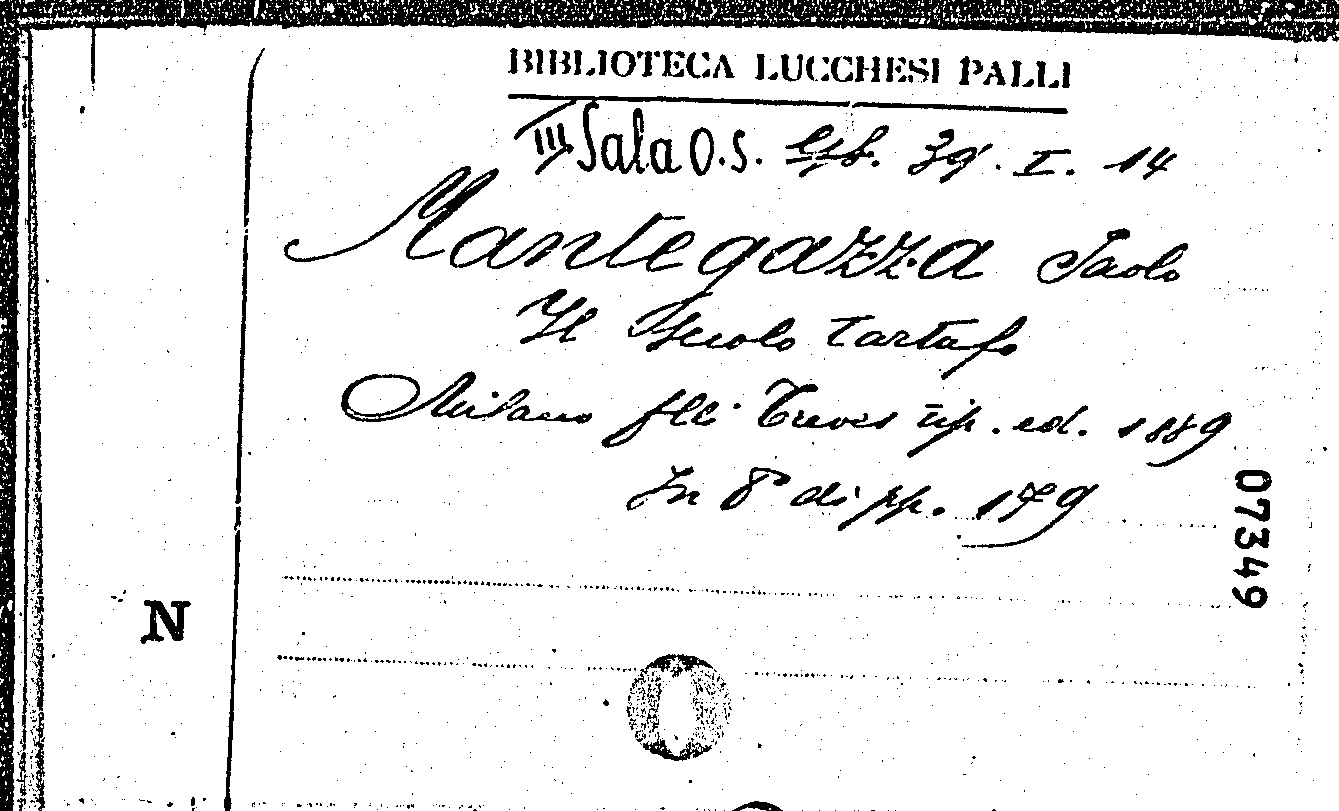 BIBLIOTECA LUCCHESI PALLI
III Sala O.S. 39. I. 14
Mantegazza Paolo
Il Secolo tartufo
Milano flli Treves tip. ed. 1889
In 8° di pp. 179
07349
N